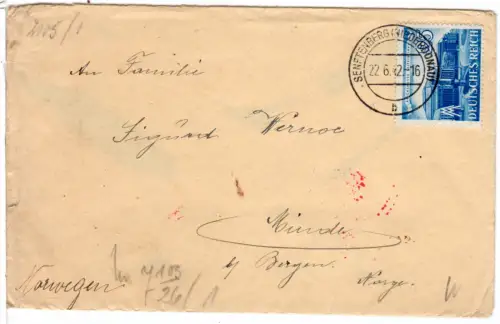 2105/1
SENFTENBERG (NIEDERDONAU)
22.6.42.-16
b
DEUTSCHES REICH
An Familie
Sigurd Vernoe
Minde
b/ Bergen.
Norge.
Norwegen
26/1